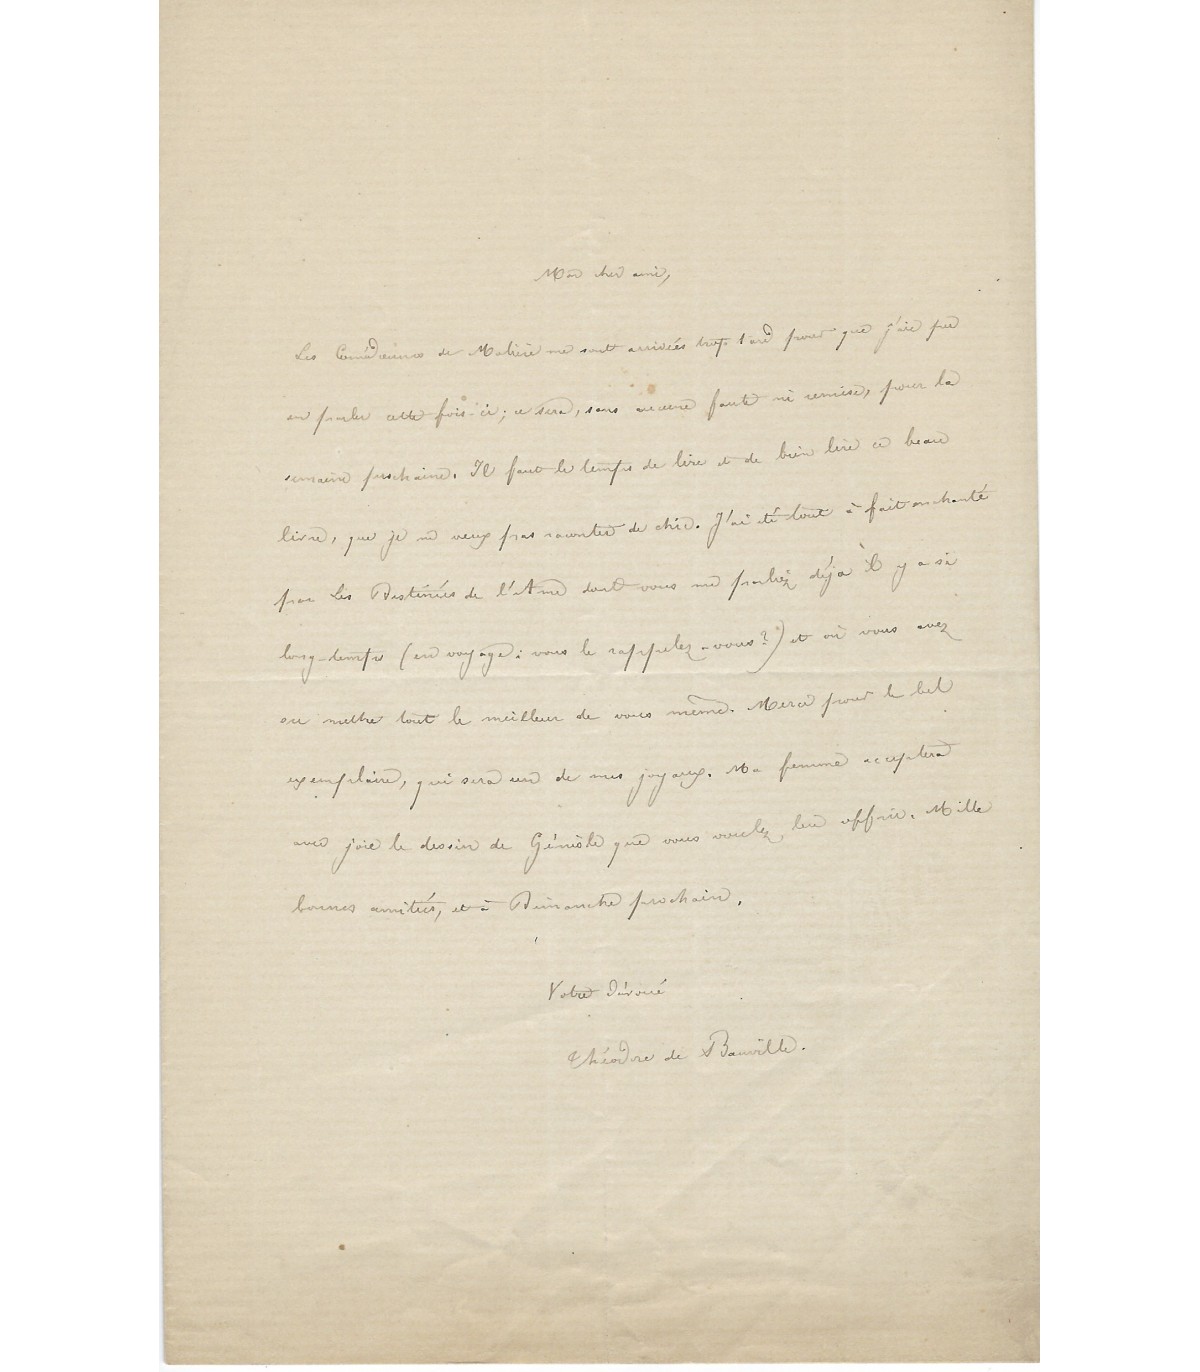 Mon cher ami,
Les Comédiennes de Molière me sont arrivées trop tard pour que j'aie pu
en parler cette fois-ci; ce sera, sans aucune faute ni remise, pour la
semaine prochaine. Il faut le temps de lire et de bien lire ce beau
livre, que je ne veux pas raconter de chic. J'ai été tout à fait enchanté
par Les Destinées de l'Ame dont vous me parliez déjà il y a si
long-temps (en voyage: vous le rappelez-vous?) et où vous avez
su mettre tout le meilleur de vous même. Merci pour le bel
exemplaire, qui sera un de mes joyaux. Ma femme acceptera
avec joie le dessin de Géniole que vous voulez lui offrir. Mille
bonnes amitiés, et à Dimanche prochain.
Votre dévoué
Théodore de Banville.